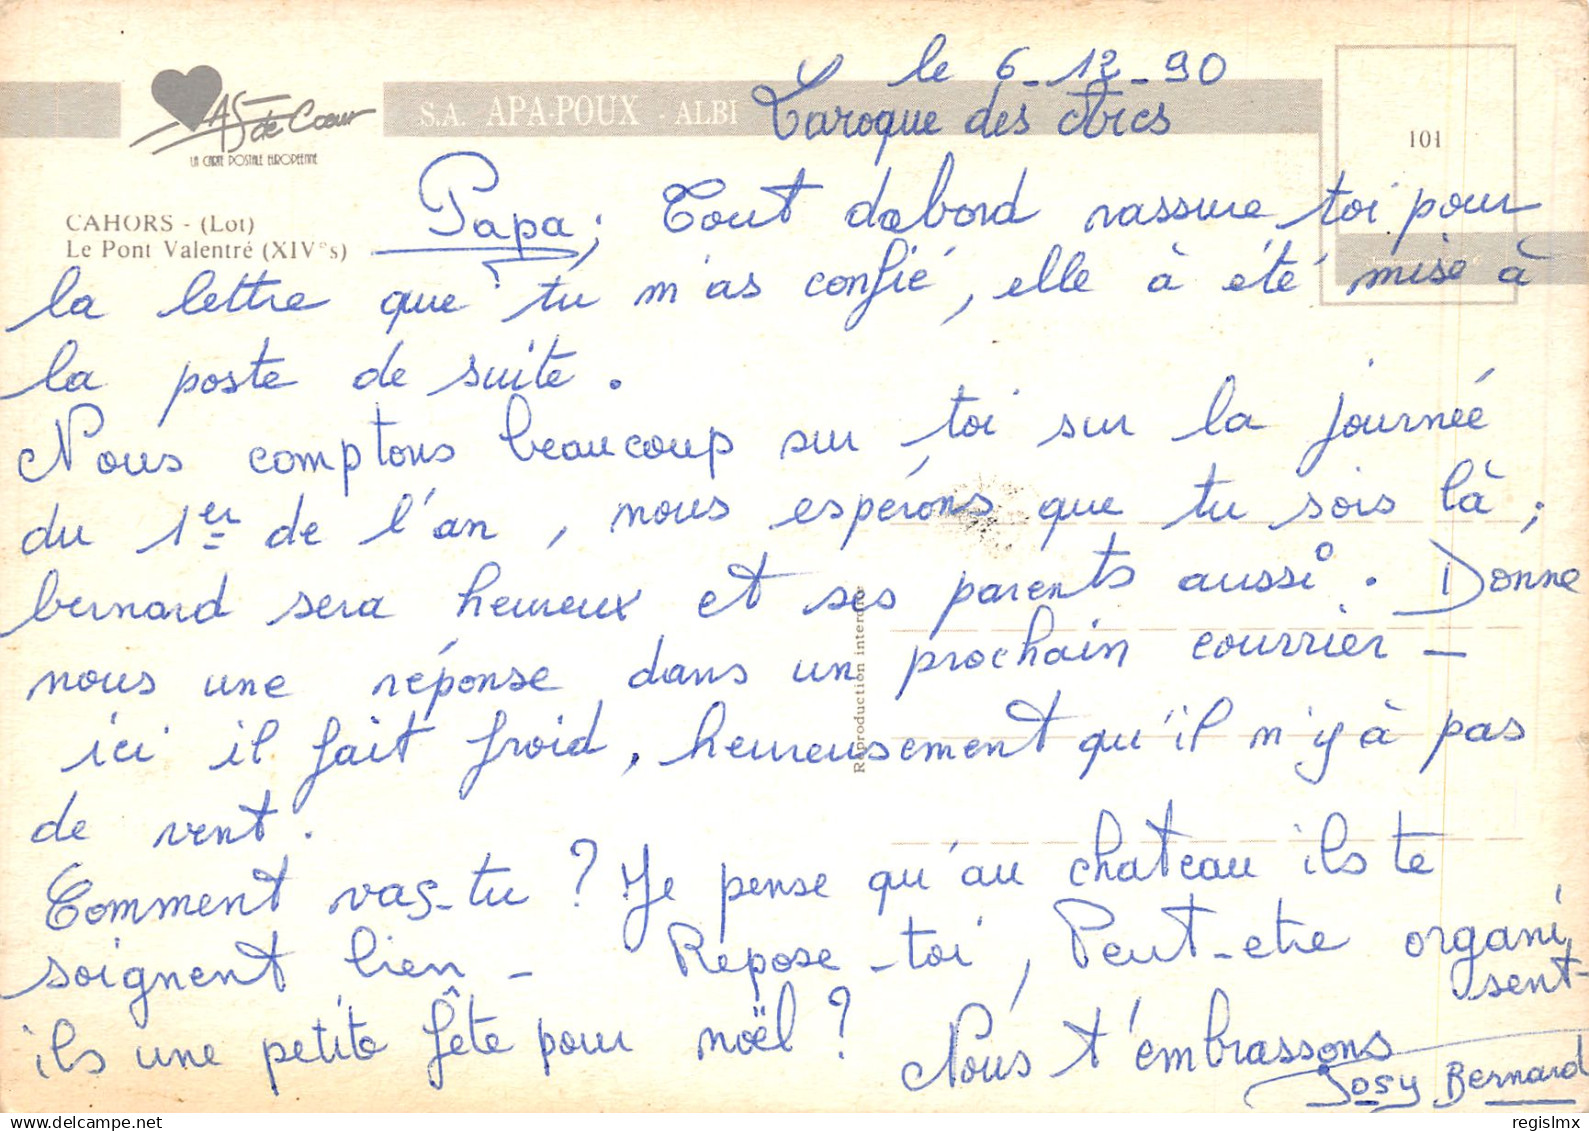 le 6-12-90
Laroque des Arcs
AS de Cœur
LA CARTE POSTALE EUROPÉENNE
S.A. APA-POUX - ALBI
101
CAHORS - (Lot)
Le Pont Valentré (XIV°s)
Papa; Tout dabord rassure toi pour
la lettre que tu m'as confié, elle à été mise à
la poste de suite.
Nous comptons beaucoup sur toi sur la journée
du 1er de l'an, nous espérons que tu sois là;
bernard sera heureux et ses parents aussi. Donne
nous une réponse dans un prochain courrier -
ici il fait froid, heureusement qu'il n'y à pas
de vent.
Comment vas-tu ? Je pense qu'au chateau ils te
soignent bien - Repose-toi, Peut-etre organi
sent-
ils une petite fête pour noël ? Nous t'embrassons
Josy Bernard
Reproduction interdite
regislmx